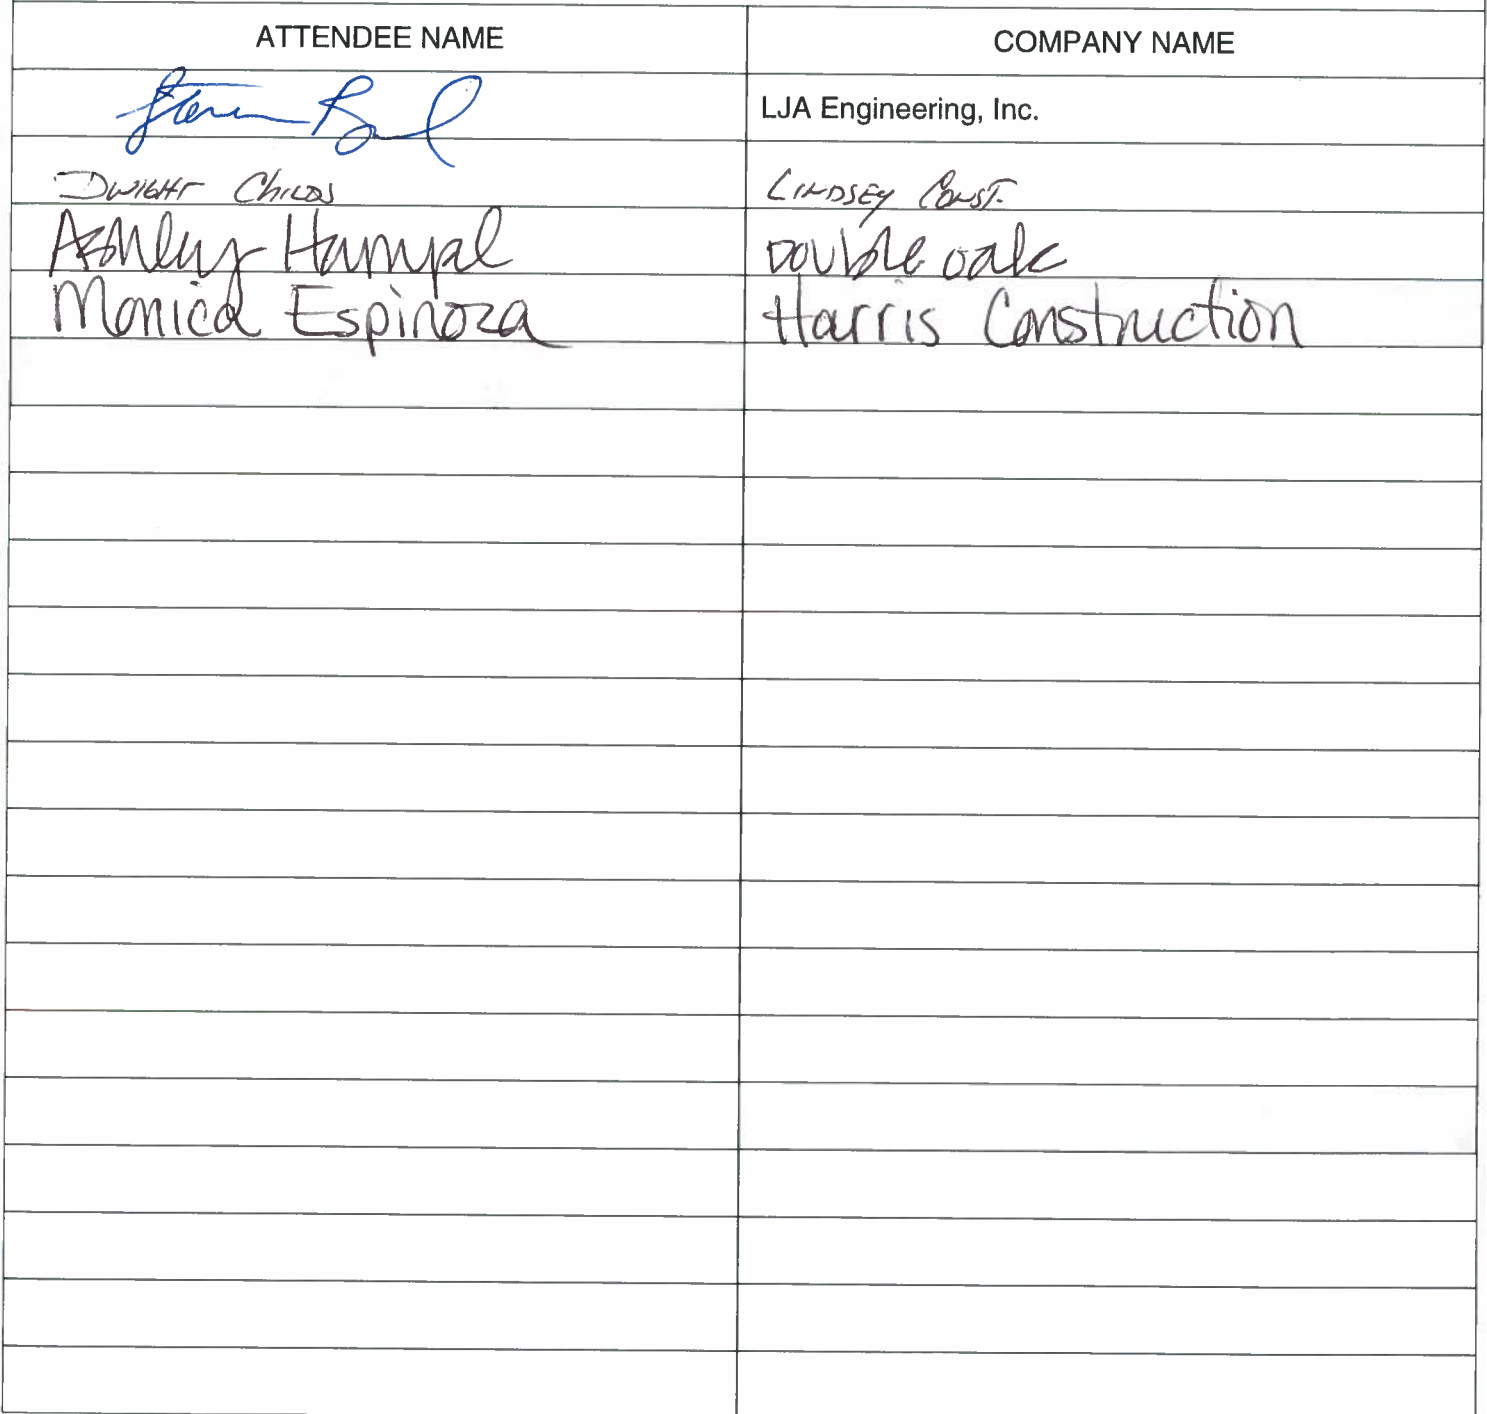 ATTENDEE NAME COMPANY NAME
Steven LJA Engineering, Inc.
Dwight Childs Lindsey Const.
Ashley Hampel Double oak
Monica Espinoza Harris Construction